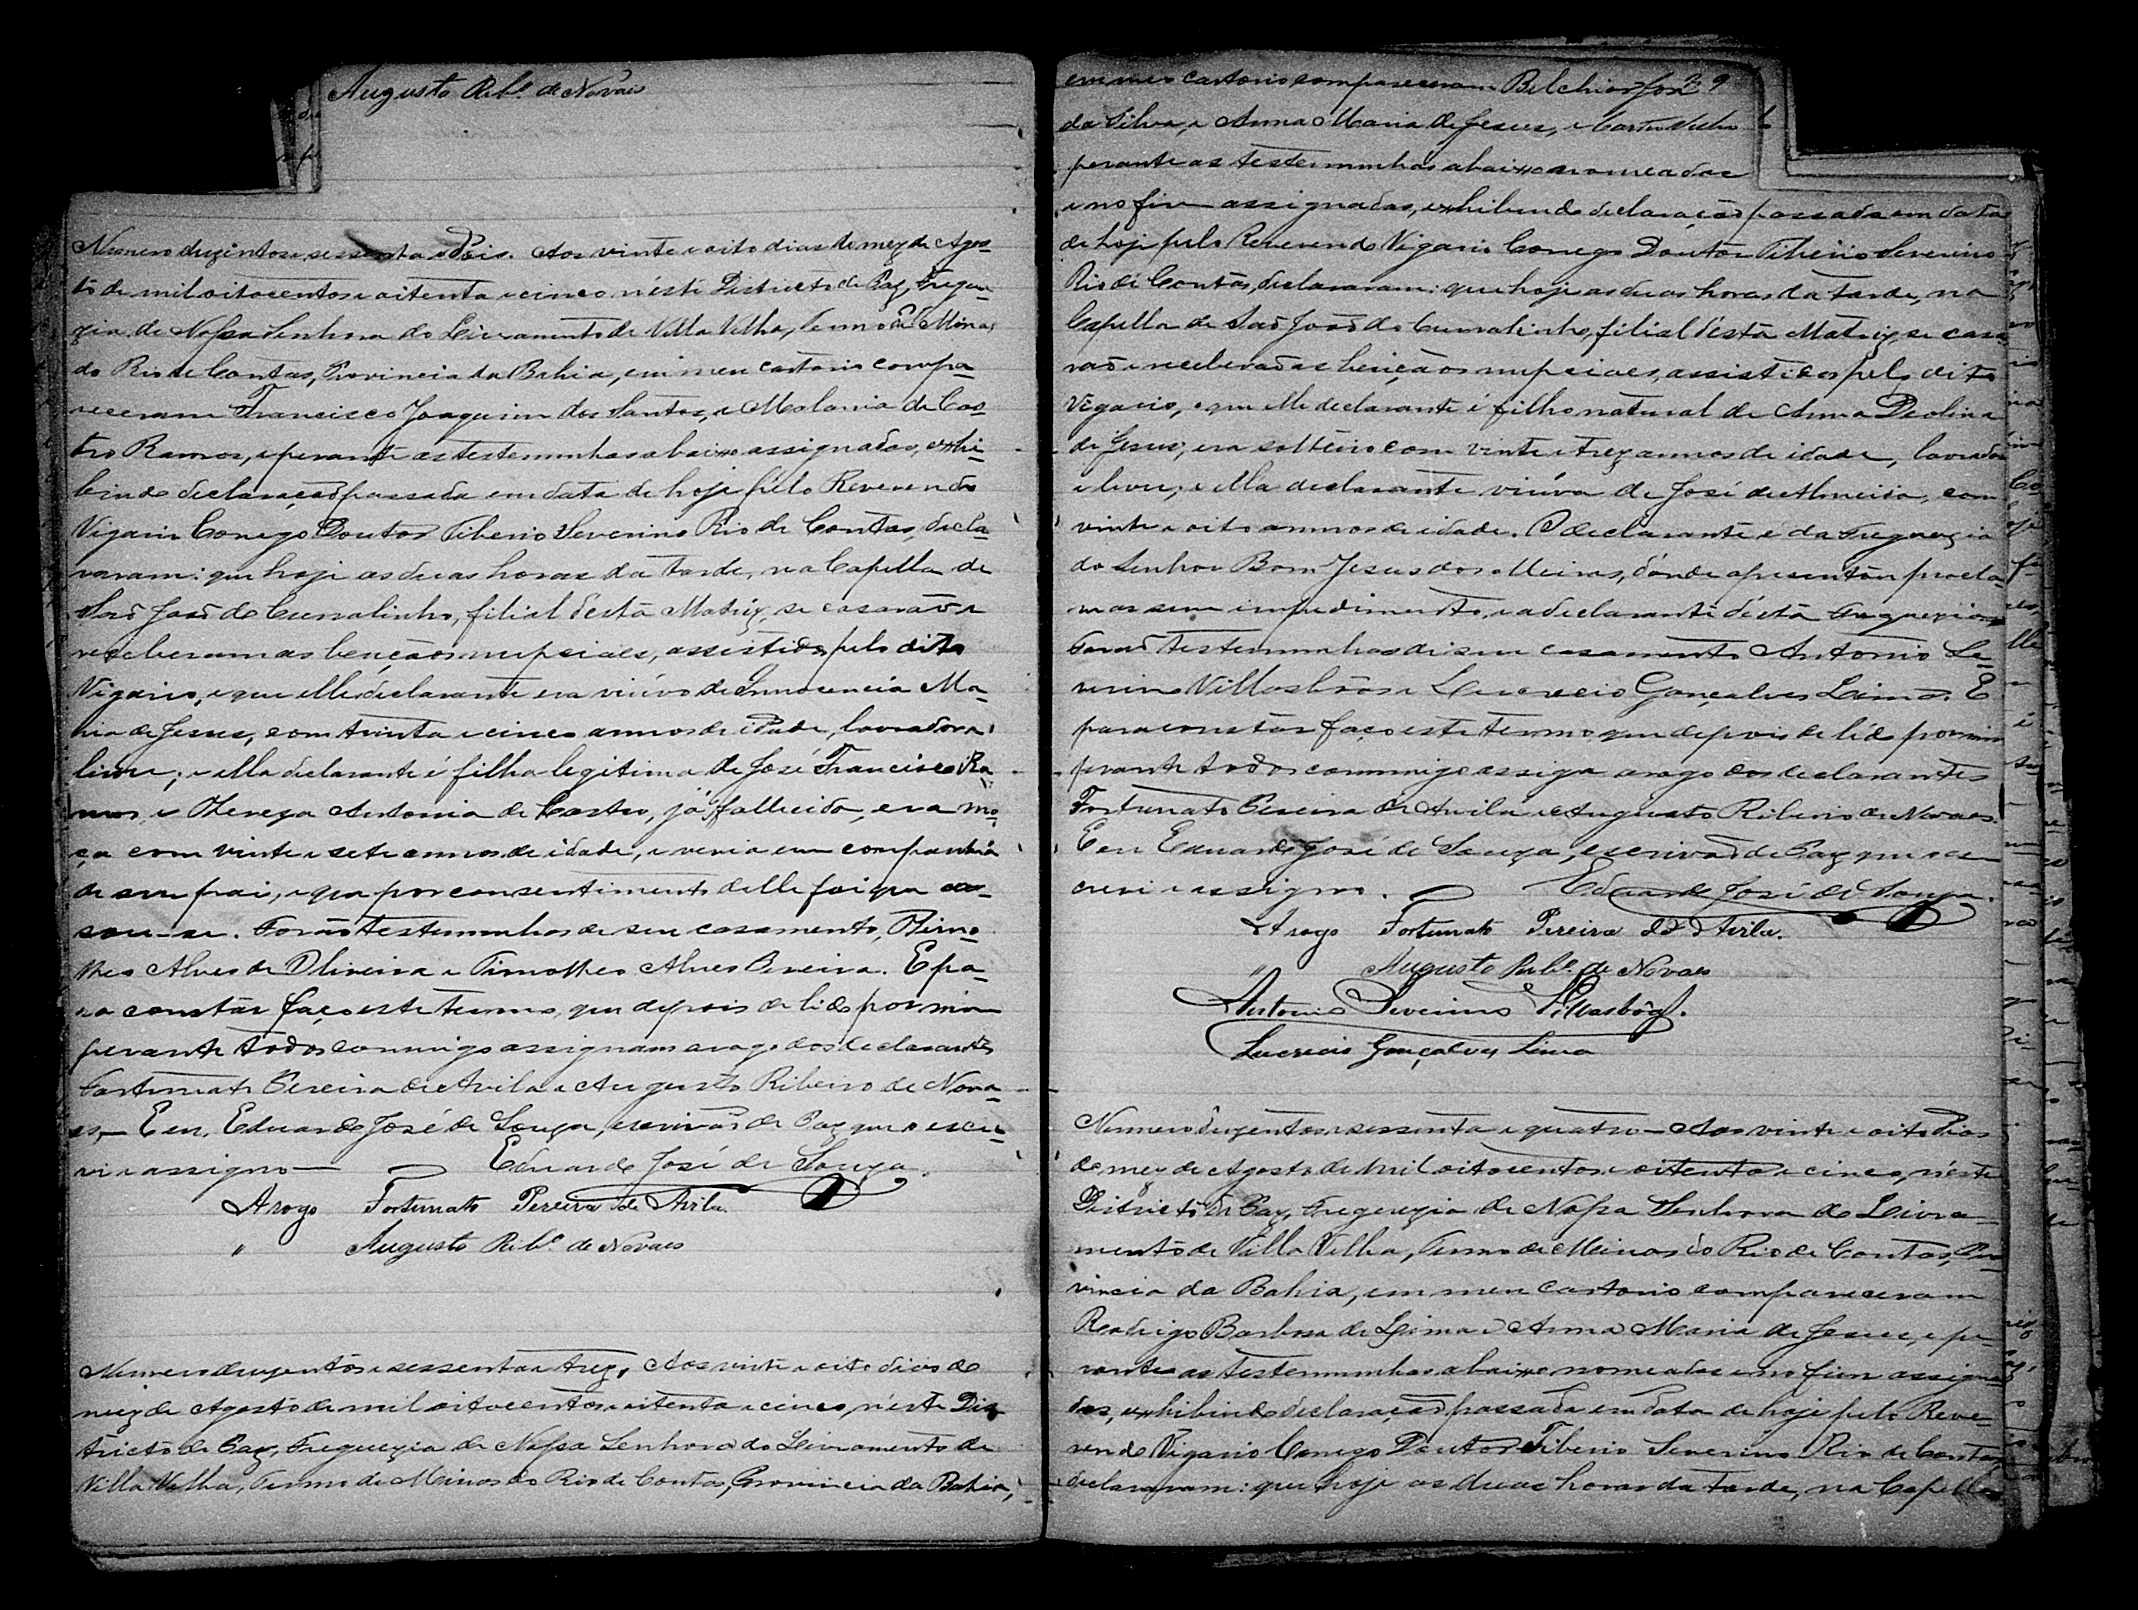 Augusto Rib.º de Novaes
Numero duzentos e sessenta e dois. Aos vinte e oito dias do mez de Agos-
to de mil oitocentos e oitenta e cinco n'este Districto de Paz, Fregue-
zia de Nossa Senhora do Livramento de Villa Velha, Termo de Minas
do Rio de Contas, Provincia da Bahia, em meu cartorio compa-
receram Francisco Joaquim dos Santos, e Malania de Cas-
tro Ramos, e perante as testemunhas abaixo assignadas, exhi-
bindo declaração passada em data de hoje pelo Reverendo
Vigario Conego Doutor Tiberio Severino Rio de Contas, decla-
raram: que hoje as duas horas da tarde, na Capella de
São João do Curralinho, filial d'esta Matriz, se casarão e
receberam as bençãos nupciaes, assistidos pelo dito
Vigario, e que elle declarante era viúvo de Innocencia Ma-
ria de Jesus, com trinta e cinco annos de idade, lavrador e
livre; e ella declarante é filha legitima de José Francisco Ra-
mos, e Thereza Antonia de Castro, já fallecida, era mo-
ça com vinte e sete annos de idade, e vevia em companhia
de seu pai, e que por consentimento delle foi que cas-
sou-se. Forão testemunhas de seu casamento,
Alves de Oliveira e Timotheo Alves Pereira. E pa-
ra constar faço este termo, que depois de lido por mim
perante todos commigo assignam arogo dos declarantes
Fortunato Pereira de Avila e Augusto Ribeiro de Nova-
es,— E eu, Eduardo José de Souza, escrivão de Paz que o escre-
vi e assigno— Eduardo José de Souza.
Arogo Fortunato Pereira de Avila.
" Augusto Rib.º de Novaes
Numero duzentos e sessenta e trez. Aos vinte e oito dias do
mez de Agosto de mil oitocentos e oitenta e cinco, n'este Dis-
tricto de Paz, Freguezia de Nossa Senhora do Livramento de
Villa Velha, Termo de Minas do Rio de Contas, Provincia da Bahia,
em meu cartorio compareceram Belchior José 39
da Silva, e Anna Maria de Jesus, e
perante as testemunhas abaixo nomeadas
e no fim assignadas, exhibindo declaração passada em data
de hoje pelo Reverendo Vigario Conego Doutor Tiberio Severino
Rio de Contas, declararam: que hoje as duas horas da tarde, na
Capella de São João do Curralinho, filial d'esta Matriz, se casa-
rão e receberão as bençãos nupciaes, assistidos pelo dito
Vigario, e que elle declarante é filho natural de Anna
de Jesus, era solteiro com vinte e trez annos de idade, lavrador
e livre; e ella declarante viúva de José de Almeida, com
vinte e oito annos de idade. O declarante é da Freguezia
do Senhor Bom Jesus dos Meiras, d'onde apresentou procla-
mas sem impedimento, e a declarante d'esta Freguezia.
Forão testemunhas de seu casamento Antonio Se-
verino Villasbôas e Lucrecio Gonçalves Lima. E
para constar faço este termo que depois de lido por mim
perante todos commigo assigna arogo dos declarantes
Fortunato Pereira de Avila e Augusto Ribeiro de Novaes.
E eu Eduardo José de Souza, escrivão de Paz que o es-
crevi e assigno. Eduardo José de Souza.
Arogo Fortunato Pereira de Avila.
" Augusto Rib.º de Novaes
Antonio Severino Villasbôas.
Lucrecio Gonçalves Lima
Numero duzentos e sessenta e quatro— Aos vinte e oito dias
do mez de Agosto de mil oitocentos e oitenta e cinco, n'este
Districto de Paz, Freguezia de Nossa Senhora do Livra-
mento de Villa Velha, Termo de Minas do Rio de Contas, Pro-
vincia da Bahia, em meu cartorio compareceram
Rodrigo Barbosa de Lima e Anna Maria de Jesus, e pe-
rante as testemunhas abaixo nomeadas e no fim assigna-
das, exhibindo declaração passada em data de hoje pelo Reve-
rendo Vigario Conego Doutor Tiberio Severino Rio de Contas,
declararam: que hoje as duas horas da tarde, na Capella